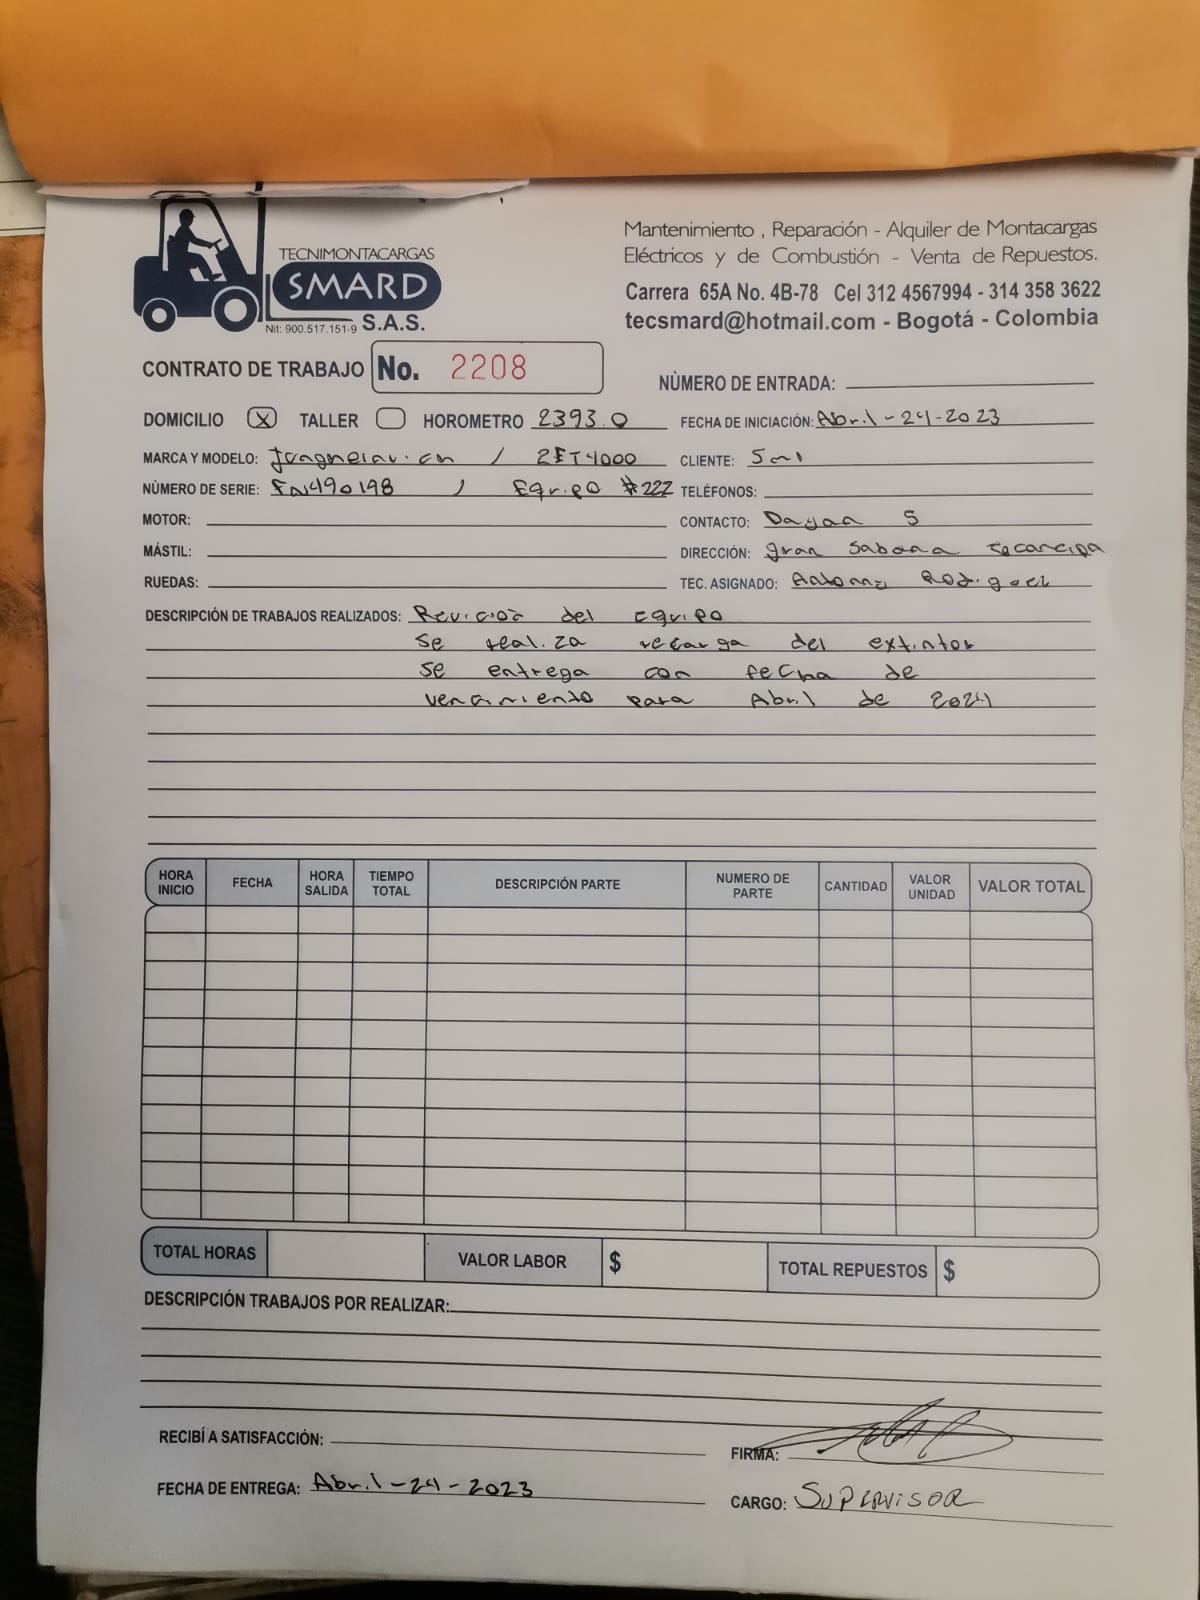 TECNIMONTACARGAS
SMARD
Nit: 900.517.151-9 S.A.S.
Mantenimiento , Reparación - Alquiler de Montacargas
Eléctricos y de Combustión - Venta de Repuestos.
Carrera 65A No. 4B-78 Cel 312 4567994 - 314 358 3622
tecsmard@hotmail.com - Bogotá - Colombia
CONTRATO DE TRABAJO No. 2208
NÙMERO DE ENTRADA:
DOMICILIO X TALLER HOROMETRO 2393.0
FECHA DE INICIACIÓN: Abril-24-2023
MARCA Y MODELO: / 
CLIENTE:
NÙMERO DE SERIE: FN490198 / Equipo #222
TELÉFONOS:
MOTOR:
CONTACTO: Dayan S
MÁSTIL:
DIRECCIÓN: gran Sabana tocancipa
RUEDAS:
TEC. ASIGNADO: Antonny Rodriguez
DESCRIPCIÓN DE TRABAJOS REALIZADOS: Revisión del Equipo
Se realiza recarga del extintor
Se entrega con fecha de
vencimiento para Abril de 2024
HORA INICIO FECHA HORA SALIDA TIEMPO TOTAL DESCRIPCIÓN PARTE NUMERO DE PARTE CANTIDAD VALOR UNIDAD VALOR TOTAL
TOTAL HORAS VALOR LABOR $ TOTAL REPUESTOS $
DESCRIPCIÓN TRABAJOS POR REALIZAR:
RECIBÍ A SATISFACCIÓN:
FIRMA:
FECHA DE ENTREGA: Abril-24-2023
CARGO: SUPERVISOR